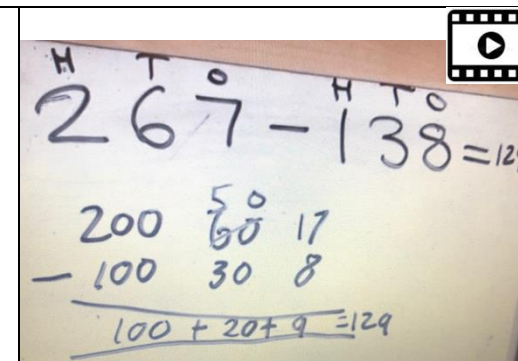 H T O H T O
267 - 138 = 129
50
200 60 17
- 100 30 8
100 + 20 + 9 = 129